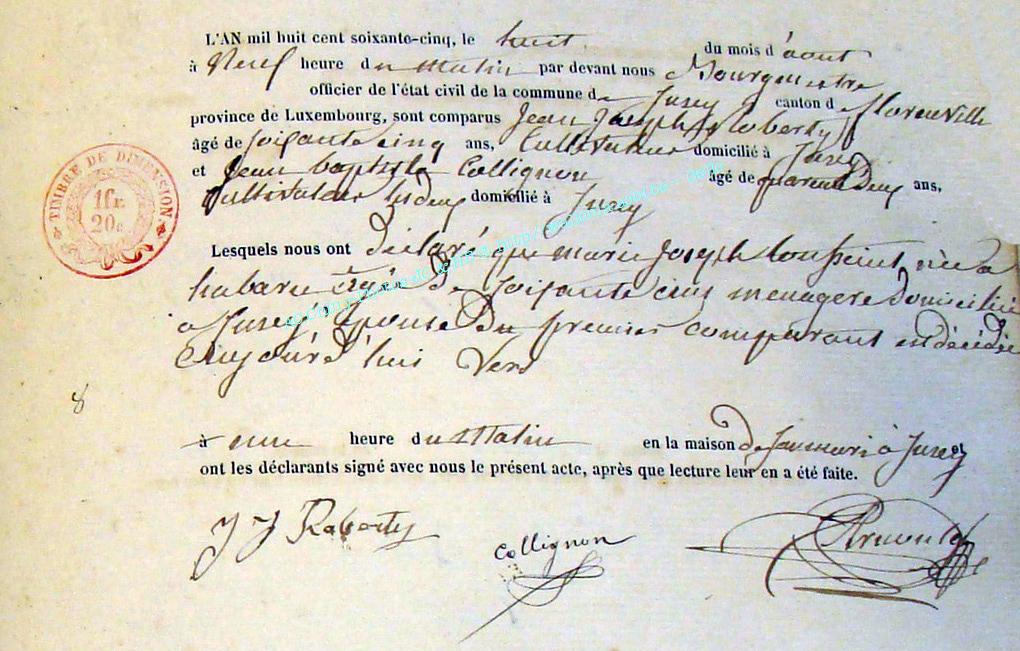 L'AN mil huit cent soixante-cinq, le huit du mois d'aout
à Neuf heure du Matin par devant nous Bourgmestre
officier de l'état civil de la commune de Jusey canton de florenville
province de Luxembourg, sont comparus Jean Joseph Roberty
âgé de soixante cinq ans, Cultivateur domicilié à Jusey
et Jean baptiste Collignon âgé de quarante Deux ans,
Cultivateur domicilié à Jusey
Lesquels nous ont déclaré que marie Joseph née a
habaru agée de soixante cinq menagere domiciliée
a Jusey, Epouse du premier comparant est décédée
aujourd'hui Vers
à une heure du Matin en la maison de son mari à Jusey
ont les déclarants signé avec nous le présent acte, après que lecture leur en a été faite.
J J Roberty
Collignon
TIMBRE DE DIMENSION
1fr.
20c.
8